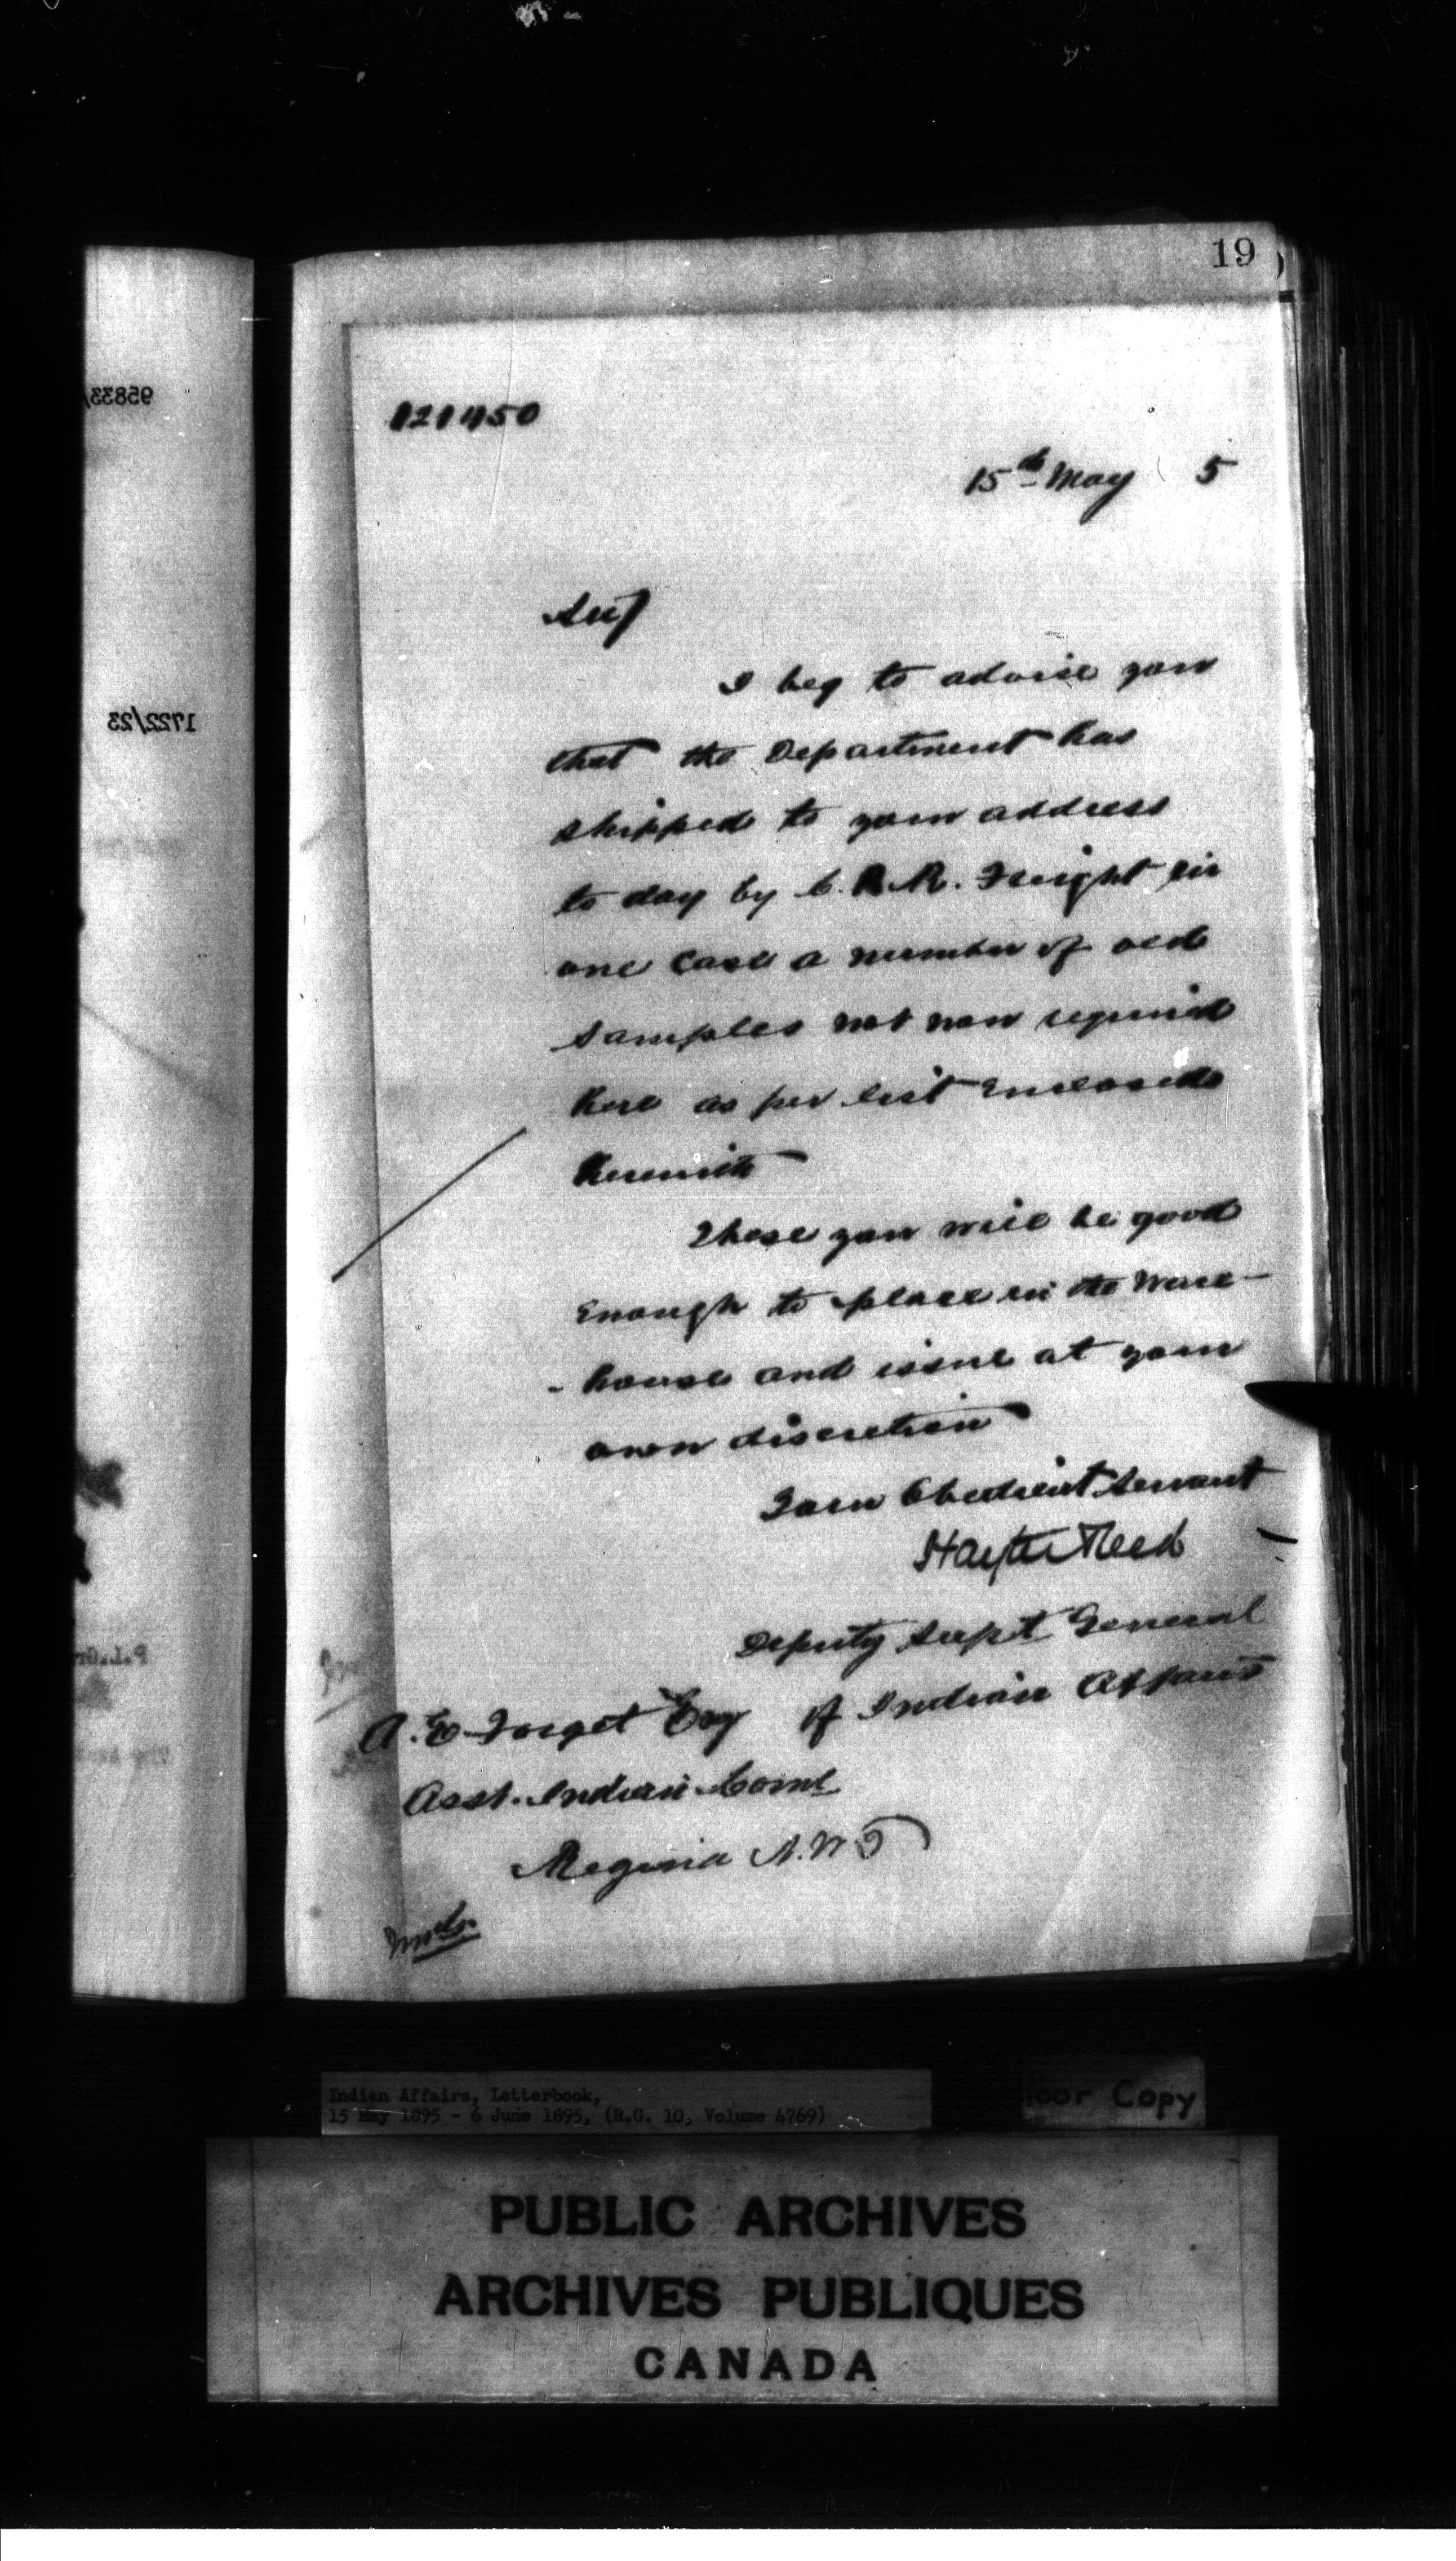 19
121450
15th May 5
Sir,
I beg to advise you
that the Department has
shipped to your address
to day by C.P.R. Freight in
one case a number of old
samples not now required
here as per list enclosed
herewith
These you will be good
enough to place in the Ware-
- house and issue at your
own discretion
Your Obedient Servant
Hayter Reed
Deputy Supt General
of Indian Affairs
A. E. Forget Esq
Asst. Indian Comr
Regina N.W.T
95833
1722/23
Indian Affairs, Letterbook,
15 May 1895 - 6 June 1895, (R.G. 10, Volume 4769)
Poor Copy
PUBLIC ARCHIVES
ARCHIVES PUBLIQUES
CANADA